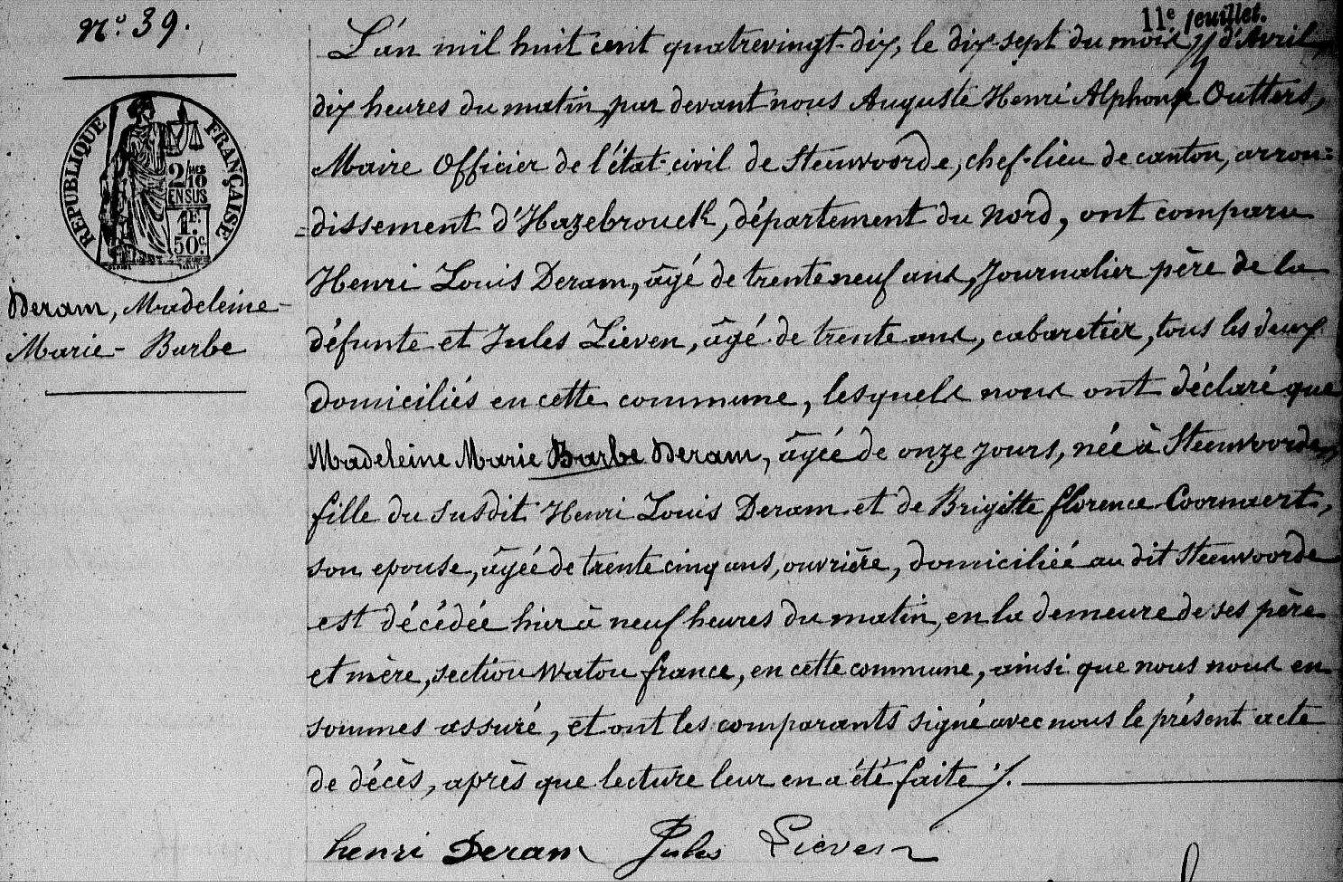 11e feuillet.
n° 39.
L'an mil huit cent quatrevingt-dix, le dix-sept du mois d'Avril,
dix heures du matin, par devant nous Auguste Henri Alphonse Outters,
Maire Officier de l'état-civil de Steenvoorde, chef-lieu de canton, arron=
=dissement d'Hazebrouck, département du Nord, ont comparu
Henri Louis Deram, âgé de trente neuf ans, Journalier père de la
défunte et Jules Lieven, âgé de trente ans, cabaretier, tous les deux
domiciliés en cette commune, lesquels nous ont déclaré que
Madeleine Marie Barbe Deram, âgée de onze jours, née à Steenvoorde,
fille du susdit Henri Louis Deram et de Brigitte florence Coornaert,
son epouse, âgée de trente cinq ans, ouvrière, domiciliée au dit Steenvoorde
est décédée hier à neuf heures du matin, en la demeure de ses père
et mère, section Watou france, en cette commune, ainsi que nous nous en
sommes assuré, et ont les comparants signé avec nous le présent acte
de décès, après que lecture leur en a été faite ./.
henri Deram Jules Lieven
RÉPUBLIQUE FRANÇAISE
2/10MES
EN SUS
1F.
50c.
Deram, Madeleine-
Marie-Barbe